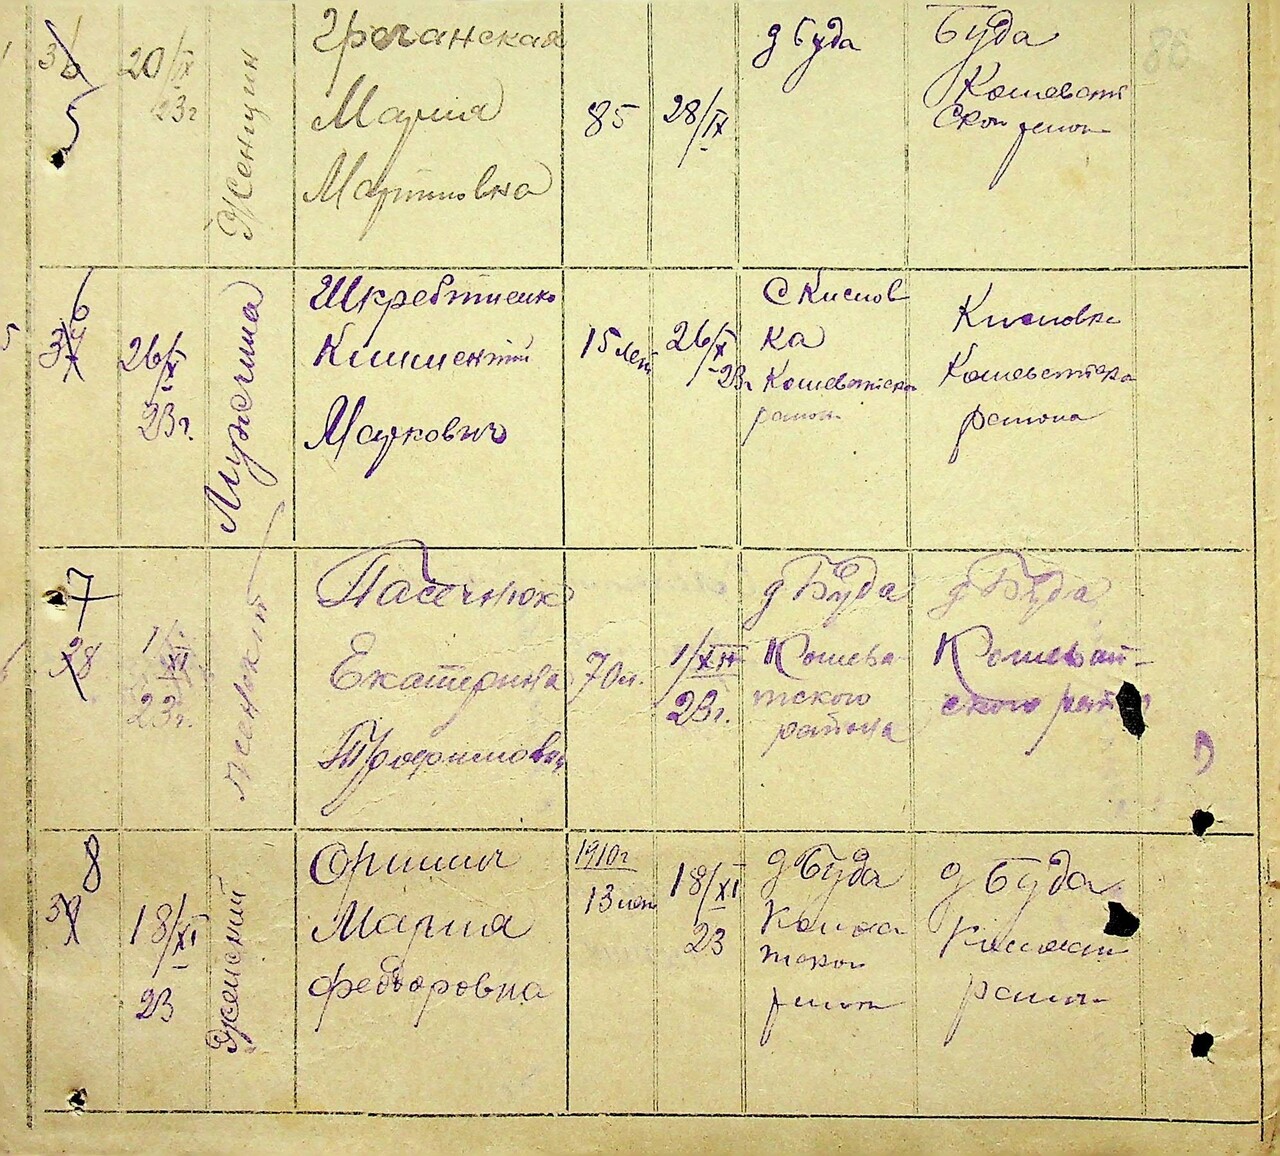 36
5
20/IX
23г
Женщин
Греганская
Мария
Мартиновна
85
28/IX
д Буда
Буда
Кошеват
ском район
86
6
37
26/X
23г.
Мужчина
Шкребтиенко
Климентий
Маркович
15 лет
26/X
23г
с Кислов
ка
Кошеватско
район
Кисловка
Кошеватского
района
7
28
1/XI
23г.
женский
Пасечнюк
Екатерина
Трофимовна
70 л.
1/XII
23г.
д Буда
Кошева
тского
района
д Буда
Кошеват-
ского район
8
39
18/XI
23
Женский
Оришич
Мария
Федоровна
1910г
13 лет
18/XI
23
д Буда
тском
район
д Буда
район